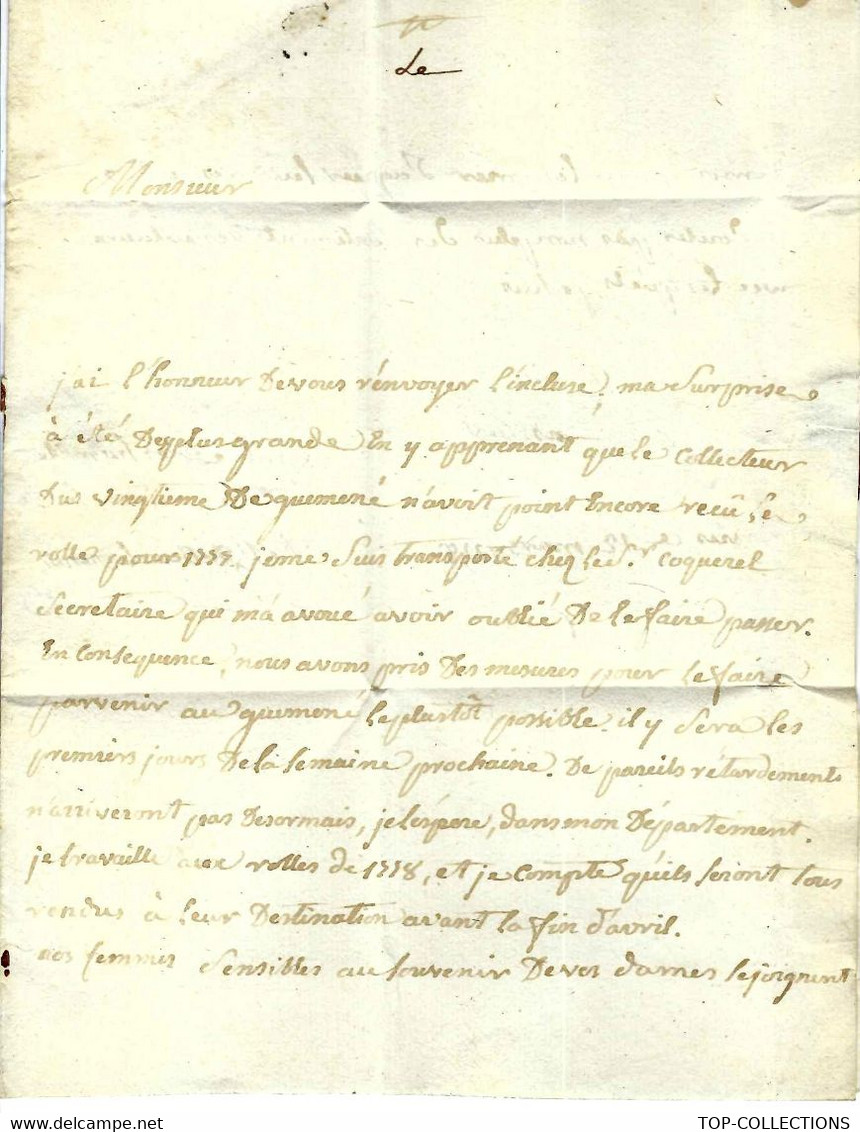 Le
Monsieur
jai l'honneur De vous rénvoyer l'incluse, ma Surprise
à été Des plus grande En y apprenant que le Collecteur
Du vingtieme De quemené n'avoit point Encore recû le
rolle pour 1777. je me Suis transporté chez le S.r Coquerel
Secretaire qui m'a avoué avoir oublié De le faire passer.
En Consequence, nous avons pris Des mesures pour le faire
parvenir au quemené le plustôt possible. il y Sera les
premiers jours De la Semaine prochaine. De pareils rétardements
n'arriveront pas Desormais, je l'éspere, dans mon Département.
je travaille aux rolles de 1778, et je Compte qu'ils Seront tous
rendus à leur Destination avant la fin d'avril.
nos femmes Sensibles au Souvenir De vos dames Se joignent
TOP-COLLECTIONS